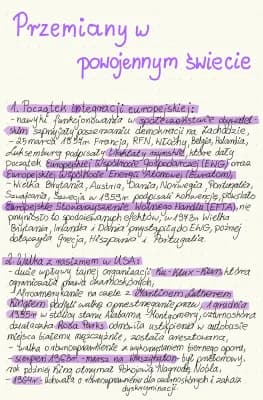 Przemiany w
powojennym świecie
1. Początek integracji europejskiej:
- nawyki funkcjonowania w społeczeństwie obywatel-
skim sprzyjały poszerzaniu demokracji na Zachodzie,
- 25 marca 1957r. Francja, RFN, Włochy, Belgia, Holandia,
Luksemburg podpisały traktaty rzymskie, które dały
początek Europejskiej Wspólnocie Gospodarczej (EWG) oraz
Europejskiej Wspólnocie Energii Atomowej (Euratom),
- Wielka Brytania, Austria, Dania, Norwegia, Portugalia,
Szwajcaria, Szwecja w 1959r. podpisały konwencję, powstało
Europejskie Stowarzyszenie Wolnego Handlu (EFTA), nie
przyniosło to spodziewanych efektów, w 1973r. Wielka
Brytania, Irlandia i Dania przystąpiły do EWG, później
dołączyła Grecja, Hiszpania i Portugalia.
2. Walka z rasizmem w USA:
- duże wpływy tajnej organizacji Ku-Klux-Klan, która
ograniczała prawa czarnoskórych,
- Afroamerykanie na czele z Martinem Lutherem
Kingiem podjęli walkę o przestrzeganie praw, 1 grudnia
1955r. w stolicy stanu Alabama, Montgomery, czarnoskóra
działaczka Rosa Parks odmówiła ustąpienia w autobusie
miejsca białemu mężczyźnie, została aresztowana,
- walka o równouprawnienie z wykorzystaniem biernego oporu,
- sierpień 1963r. - marsz na Waszyngton był przełomowy,
rok później King otrzymał Pokojową Nagrodę Nobla,
- 1964r. - ustawa o równouprawnieniu dla czarnoskórych i zakaz
dyskryminacji.